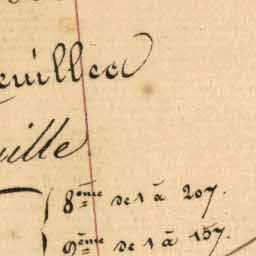 euilles
uille
8ème de 1 à 207.
9ème de 1 à 157.